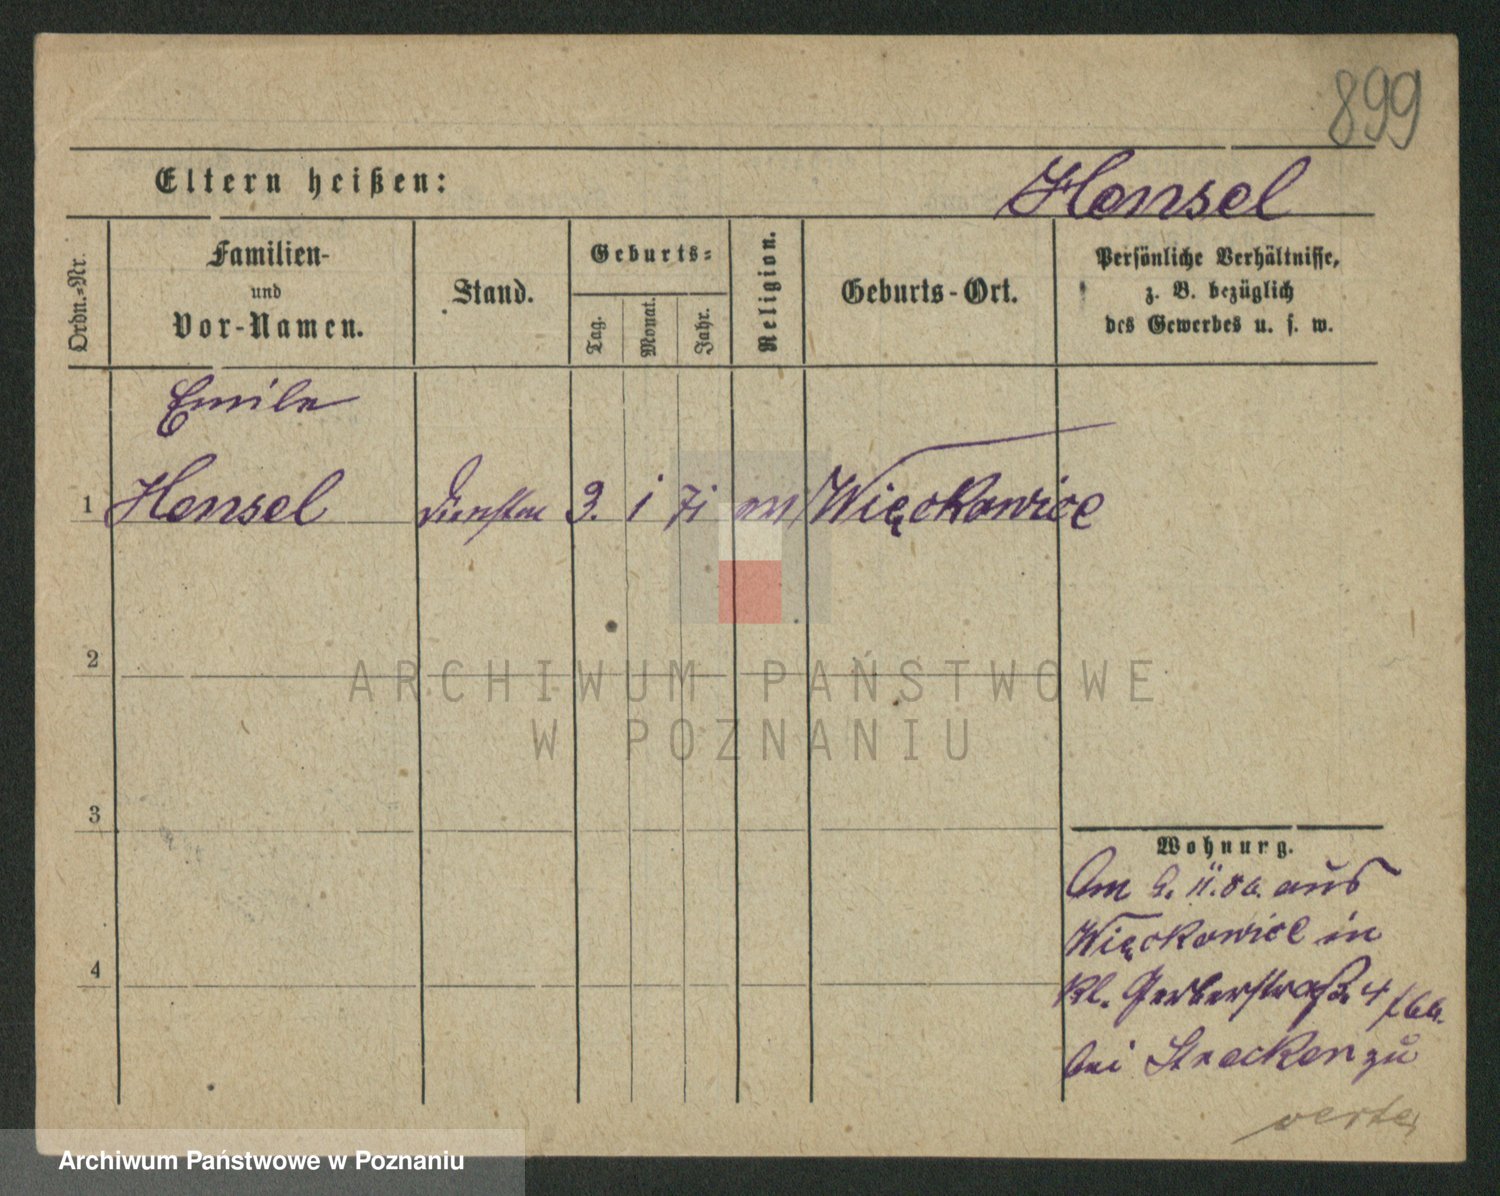 899
Eltern heißen: Hensel
Ordn.-Nr.
Familien-
und
Vor-Namen.
Stand.
Geburts-
Tag.
Monat.
Jahr.
Religion.
Geburts-Ort.
Persönliche Verhältnisse,
z. B. bezüglich
des Gewerbes u. s. w.
Emile
1 Hensel 3. 1 71 Więckowice
2
3
4
Wohnurg.
Am 11. aus
Więckowice in
Kl. Gerberstraße 4
bei zu
ARCHIWUM PAŃSTWOWE
W POZNANIU
Archiwum Państwowe w Poznaniu